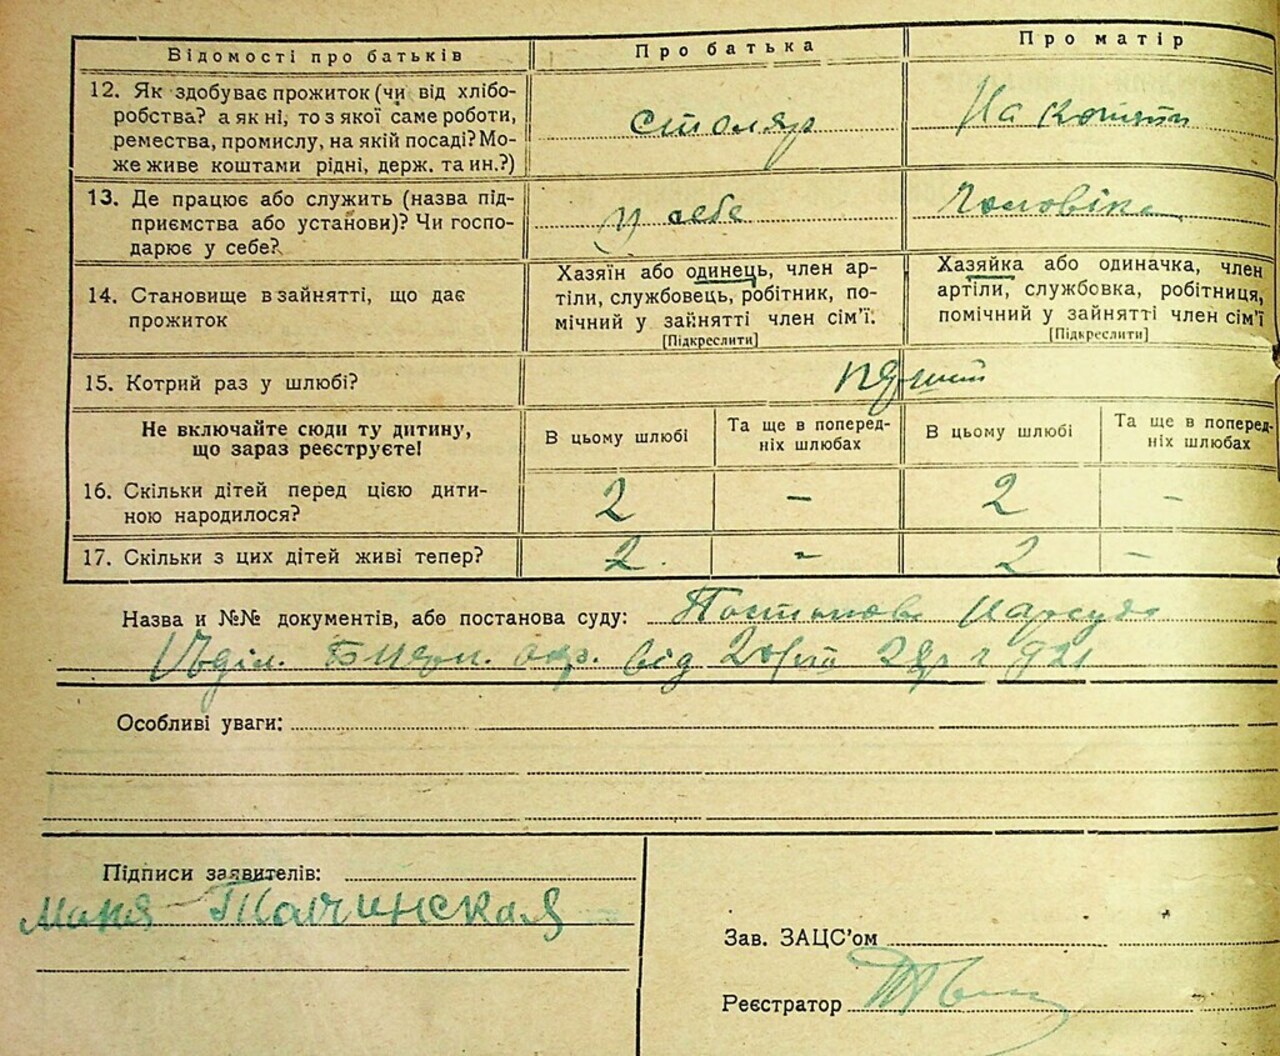 Відомості про батьків
Про батька
Про матір
12. Як здобуває прожиток (чи від хлібо-
робства? а як ні, то з якої саме роботи,
ремества, промислу, на якій посаді? Мо-
же живе коштами рідні, держ. та ин.?)
столяр
На кошти
13. Де працює або служить (назва під-
приємства або установи)? Чи госпо-
дарює у себе?
у себе
Чоловіка
14. Становище в зайнятті, що дає
прожиток
Хазяїн або одинець, член ар-
тіли, службовець, робітник, по-
мічний у зайнятті член сім'ї.
[Підкреслити]
Хазяйка або одиначка, член
артіли, службовка, робітниця,
помічний у зайнятті член сім'ї
[Підкреслити]
15. Котрий раз у шлюбі?
Не включайте сюди ту дитину,
що зараз реєструєте!
В цьому шлюбі
Та ще в поперед-
ніх шлюбах
В цьому шлюбі
Та ще в поперед-
ніх шлюбах
16. Скільки дітей перед цією дити-
ною народилося?
2 - 2 -
17. Скільки з цих дітей живі тепер?
2 - 2 -
Назва и №№ документів, або постанова суду: Постанова Нарсуду
діл. окр. від
Особливі уваги:
Підписи заявителів:
Маня Талчинская
Зав. ЗАЦС'ом
Реєстратор